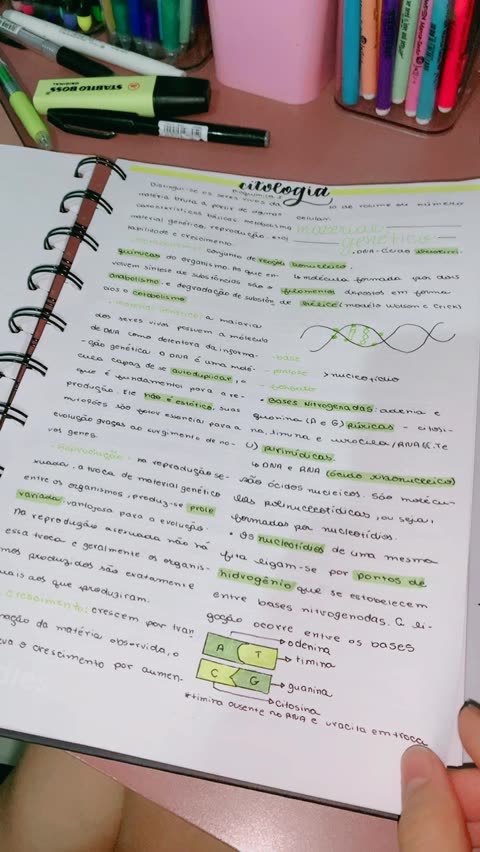 STABILO BOSS
ORIGINAL
citologia
Bioquímica
Distingui-se os seres vivos da
matéria bruta a partir de algumas
características básicas: metabolismo
material genético, reprodução,
habilidade e crescimento.
conjunto de reações
químicas do organismo. As que en-
volvem síntese de substâncias são o
anabolismo e degradação de substân-
cias o catabolismo
a maioria
dos seres vivos possuem a molécula
de DNA como detentora da informa-
ção genética. O DNA é uma molé-
cula capaz de se autoduplicar, o
que é fundamento para a re-
produção. Ele não é estático, suas
mutações são fator essencial para a
evolução graças ao surgimento de no-
vos genes.
- Reprodução: na reprodução se-
xuada, a troca de material genético
entre os organismos, produz-se prole
variada vantajosa para a evolução.
Na reprodução assexuada não há
essa troca e geralmente os organis-
mos produzidos são exatamente
iguais aos que produziram.
Crescimento: crescem por tran
mação da matéria absorvida, o
eva o crescimento por aumen.
to de volume ou número
celular.
material
genético
. DNA: ácido
↳ molécula formada por dois
filamentos dispostos em forma
de hélice (modelo Watson e Crick)
- base
- pentose > nucleotídio
- fosfato
• Bases Nitrogenadas: adenina e
guanina (A e G) púricas - citosi-
na, timina e uracila/RNA (C, T e
U) pirimídicas
↳ DNA e RNA (ácido ribonucleico)
são ácidos nucleicos. São molécu-
las polinucleotídicas, ou seja,
formadas por nucleotídios.
• Os nucleotídios de uma mesma
fita ligam-se por pontes de
hidrogênio que se estabelecem
entre bases nitrogenadas. A li-
gação ocorre entre as bases
A T
→ adenina
→ timina
C G
→ guanina
→ citosina
*timina ausente no RNA e uracila em troca